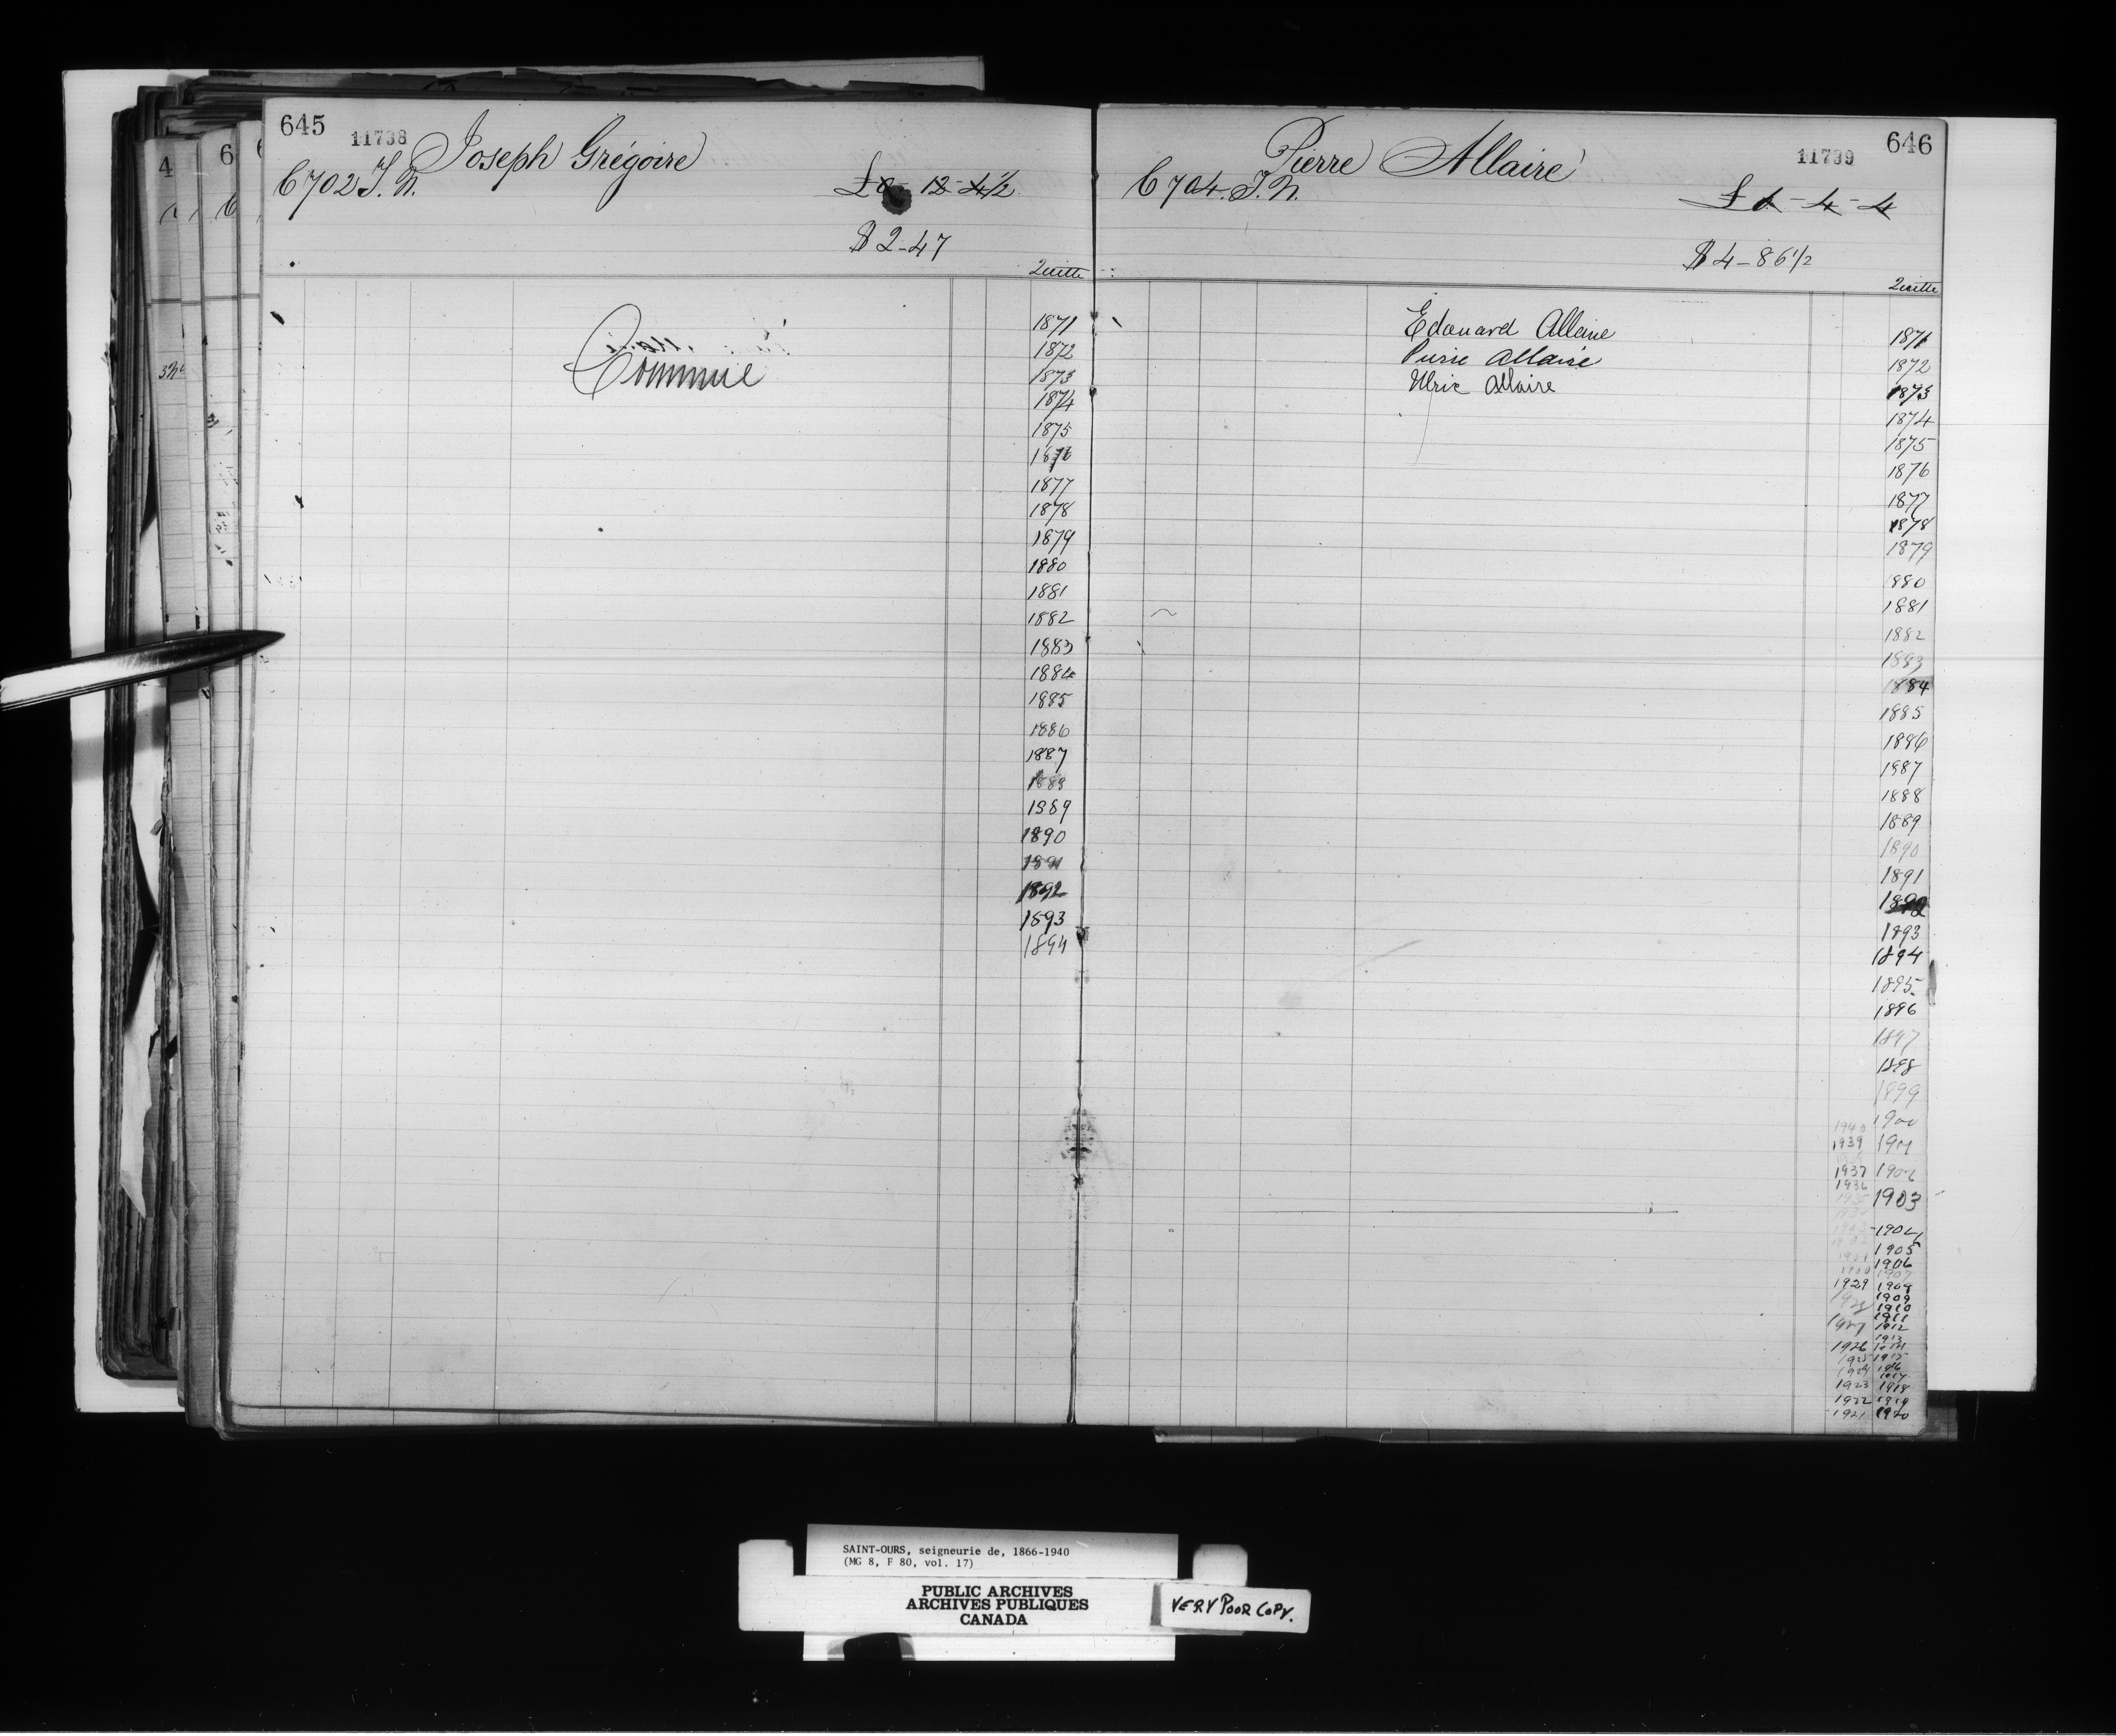 645
11738
Joseph Grégoire
C 702 T. N.
£0 - 12 - 4 1/2
$ 2-47
Quitte
Commué
1871
1872
1873
1874
1875
1876
1877
1878
1879
1880
1881
1882
1883
1884
1885
1886
1887
1888
1889
1890
1891
1892
1893
1894
646
11739
Pierre Allaire
C 704. T. N.
£1 - 4 - 4
$ 4-86 1/2
Quitte
Edouard Allaire
Pierre Allaire
Ulric Allaire
1871
1872
1873
1874
1875
1876
1877
1878
1879
1880
1881
1882
1883
1884
1885
1886
1887
1888
1889
1890
1891
1892
1893
1894
1895
1896
1897
1898
1899
1940 1900
1939 1901
1937 1902
1936
1935 1903
1904
1931 1905
1906
1930 1907
1929 1908
1928 1909
1910
1911
1927 1912
1913
1926 1914
1925 1915
1924 1916
1917
1923 1918
1922 1919
1921 1920
SAINT-OURS, seigneurie de, 1866-1940
(MG 8, F 80, vol. 17)
PUBLIC ARCHIVES
ARCHIVES PUBLIQUES
CANADA
VERY POOR COPY.